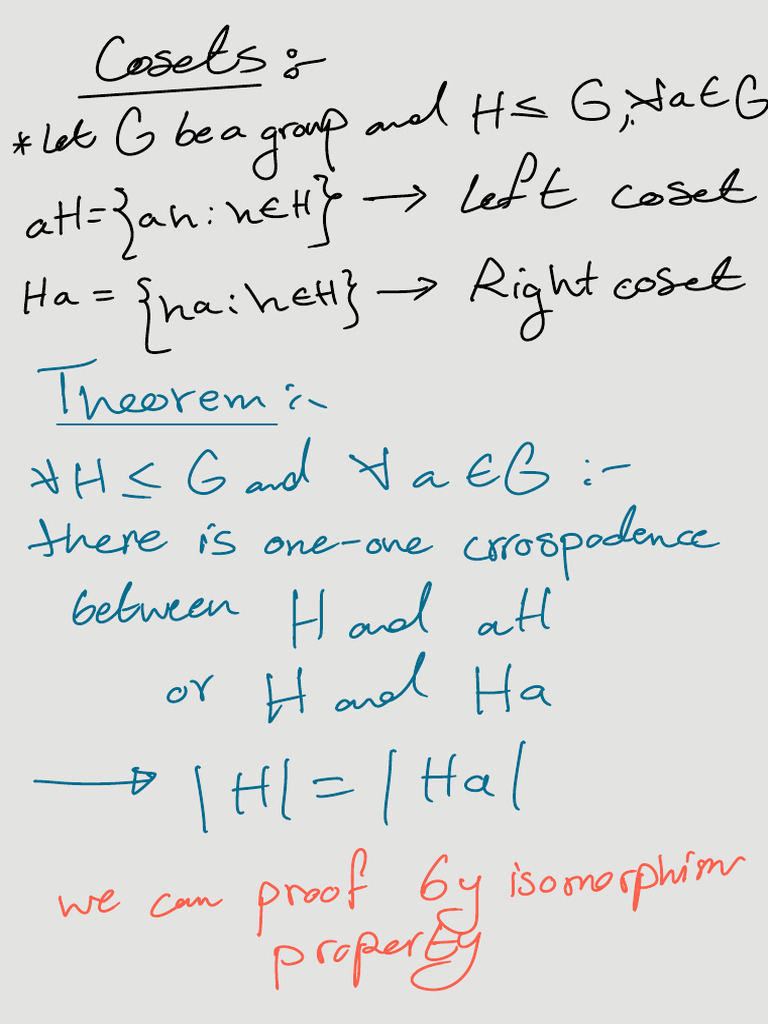 Cosets :-
* Let G be a group and H ≤ G, ∀a ∈ G
aH = {ah : h ∈ H} → Left coset
Ha = {ha : h ∈ H} → Right coset
Theorem :-
∀ H ≤ G and ∀ a ∈ G :-
there is one-one crrospodence
between H and aH
or H and Ha
→ |H| = |Ha|
we can proof by isomorphism
property